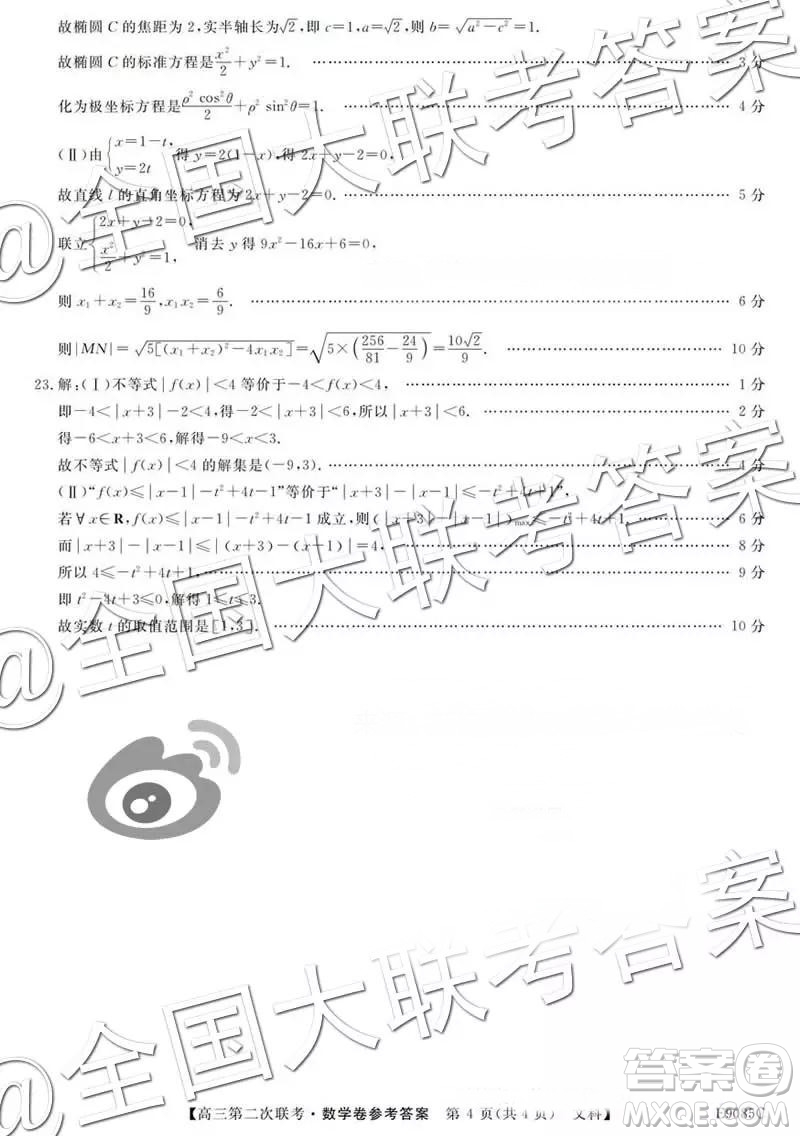 故椭圆C的焦距为2,实半轴长为√2,即c=1,a=√2,则b=√(a²-c²)=1.
故椭圆C的标准方程是x²/2+y²=1. 3分
化为极坐标方程是ρ²cos²θ/2+ρ²sin²θ=1. 4分
(Ⅱ)由{x=1-t, y=2t 得y=2(1-x),得2x+y-2=0.
故直线l的直角坐标方程为2x+y-2=0. 5分
联立{2x+y-2=0, x²/2+y²=1, 消去y得9x²-16x+6=0,
则x₁+x₂=16/9,x₁x₂=6/9. 6分
则|MN|=√(5[(x₁+x₂)²-4x₁x₂])=√(5×(256/81-24/9))=10√2/9. 10分
23.解:(Ⅰ)不等式|f(x)|<4等价于-4<f(x)<4, 1分
即-4<|x+3|-2<4,得-2<|x+3|<6,所以|x+3|<6. 2分
得-6<x+3<6,解得-9<x<3.
故不等式|f(x)|<4的解集是(-9,3). 4分
(Ⅱ)“f(x)≤|x-1|-t²+4t-1”等价于“|x+3|-|x-1|≤-t²+4t+1”,
若∀x∈R,f(x)≤|x-1|-t²+4t-1成立,则(|x+3|-|x-1|)max≤-t²+4t+1, 6分
而|x+3|-|x-1|≤|(x+3)-(x-1)|=4, 8分
所以4≤-t²+4t+1, 9分
即t²-4t+3≤0,解得1≤t≤3.
故实数t的取值范围是[1,3]. 10分
@全国大联考答案
@全国大联考答案
@全国大联考答案
答案卷
【高三第二次联考·数学卷参考答案 第4页(共4页) 文科】 E9085C